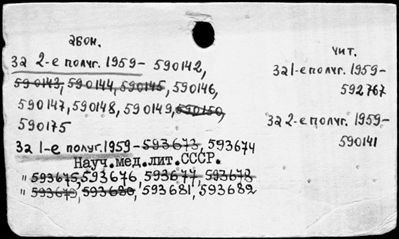 абон.
За 2-е полуг. 1959- 590142,
590143, 590144, 590145, 590146,
590147, 590148, 590149, 590150,
590175
За 1-е полуг. 1959- 593673, 593674
Науч.мед.лит.СССР.
" 593675, 593676, 593677, 593678
" 593679, 593680, 593681, 593682
чит.
За 1-е полуг. 1959-
592767
За 2-е полуг. 1959-
590141